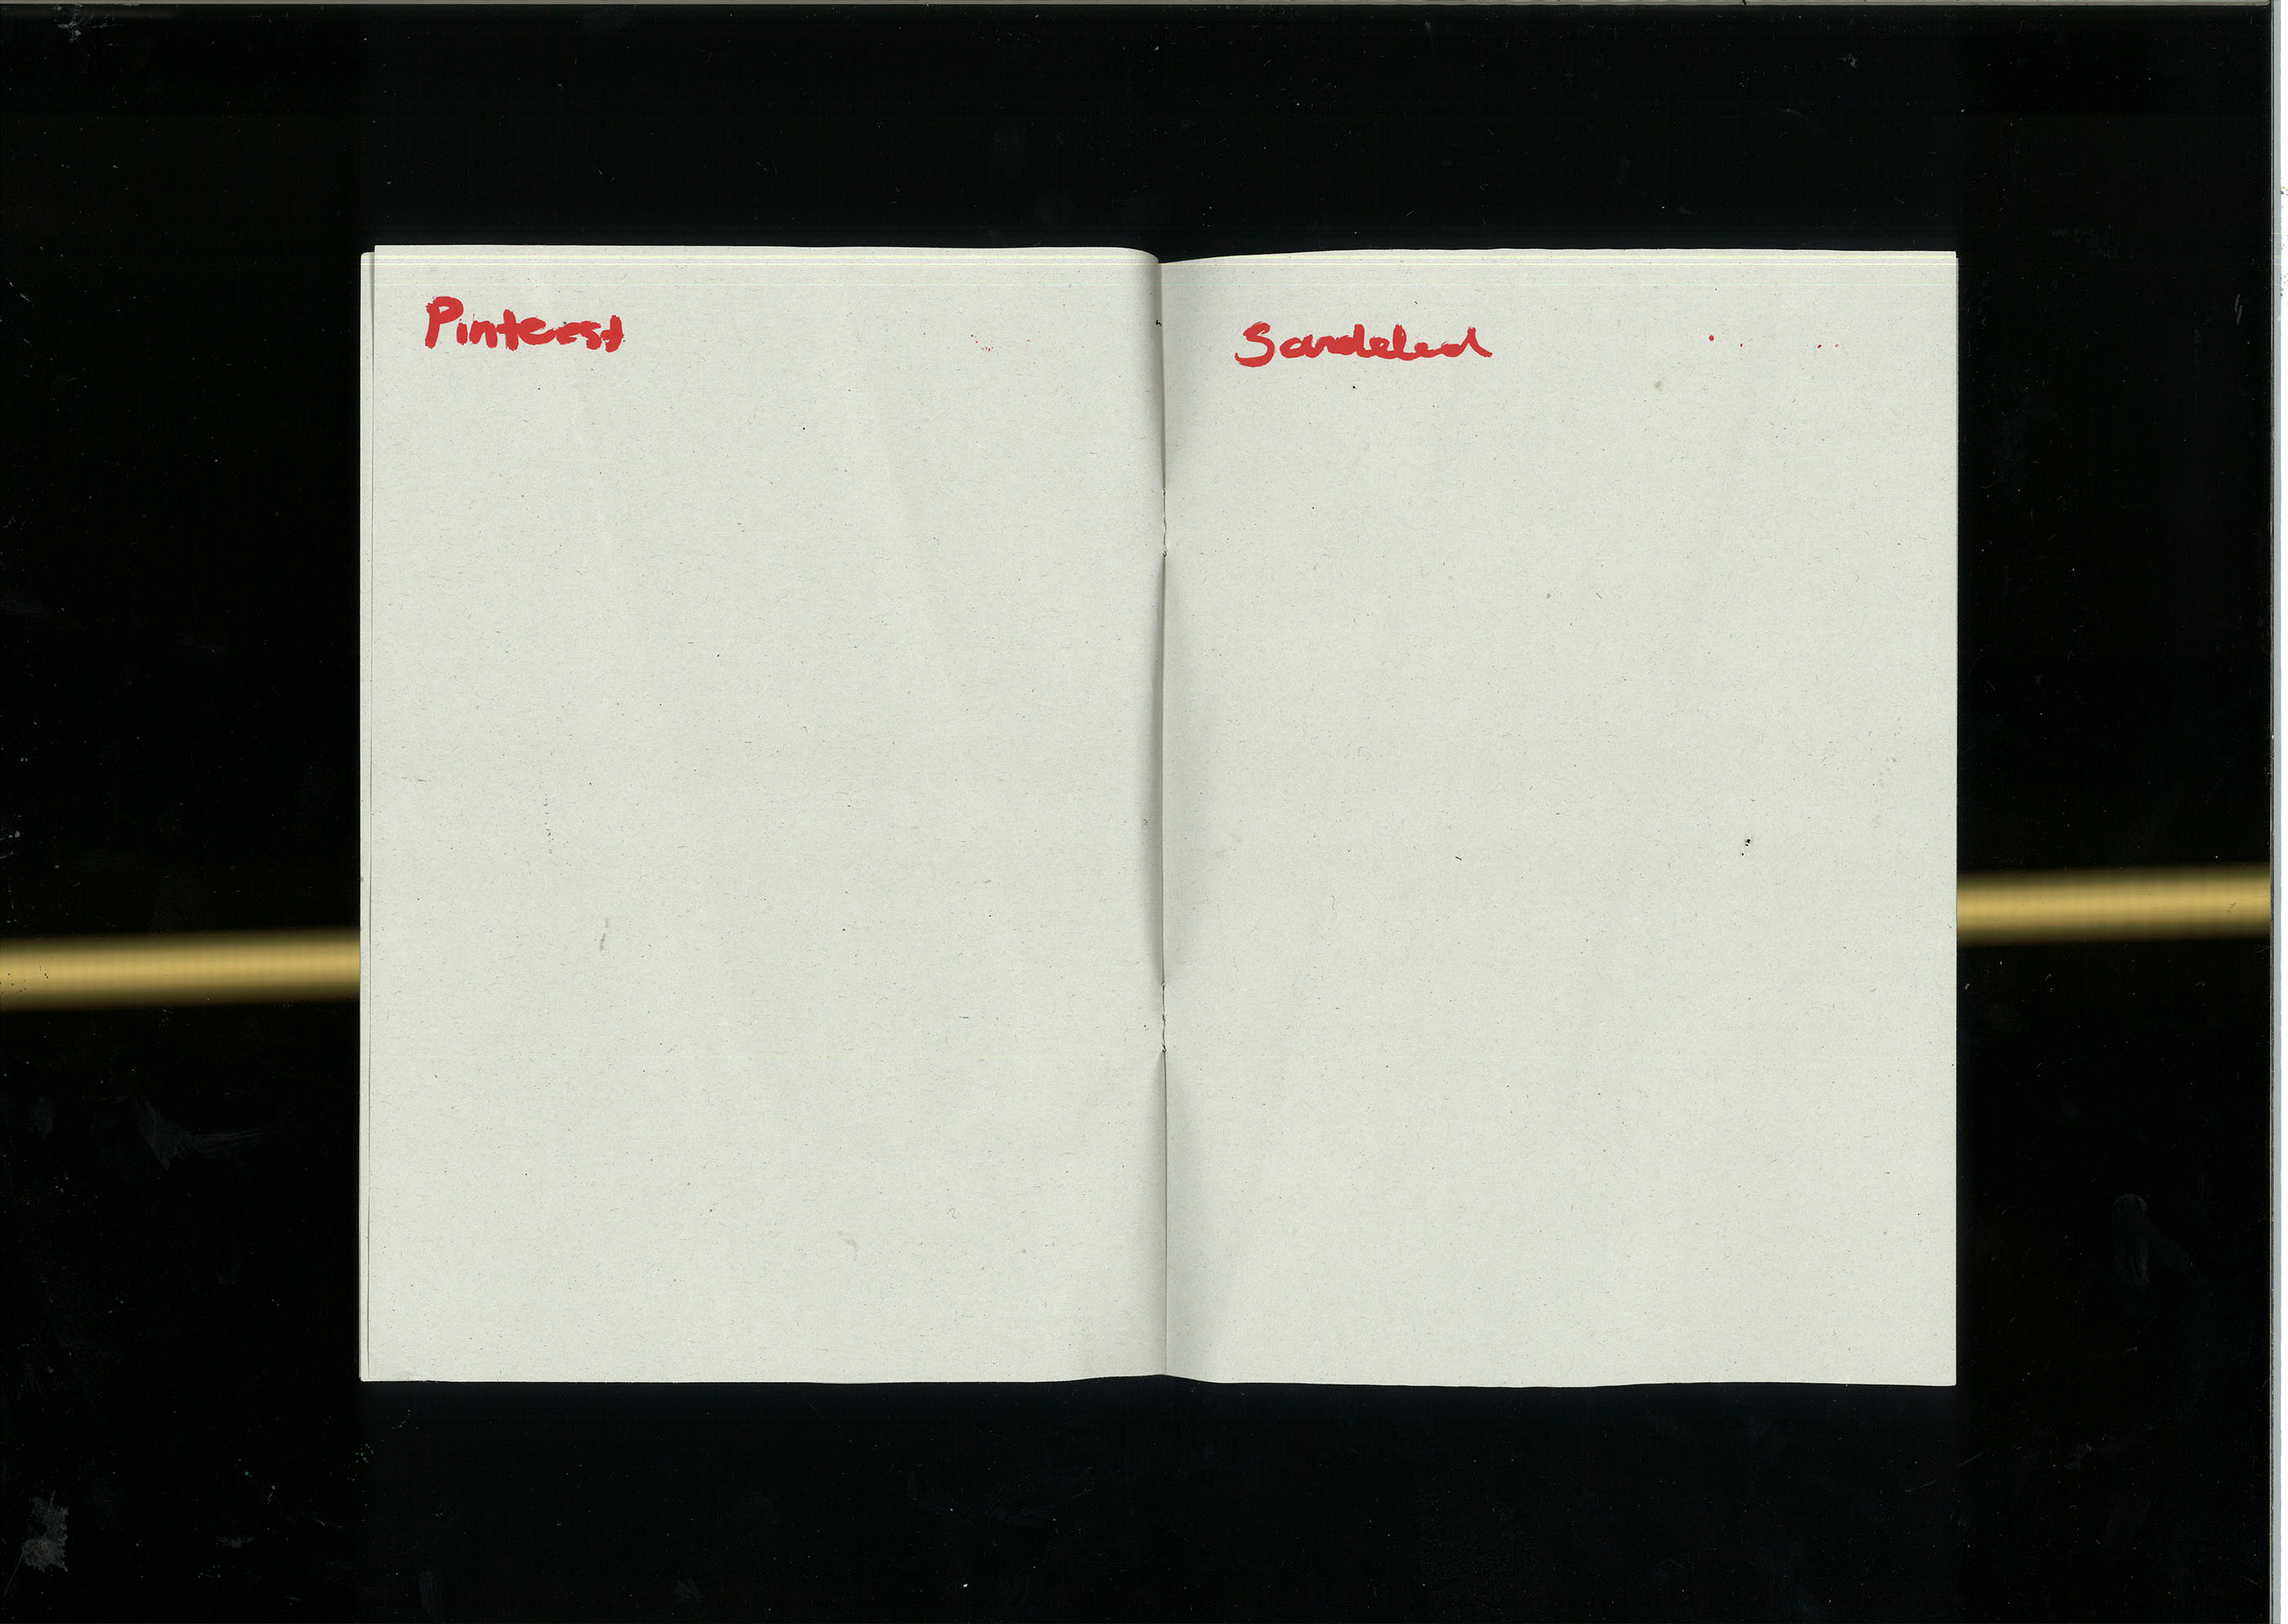 Pinterest
Sandeled